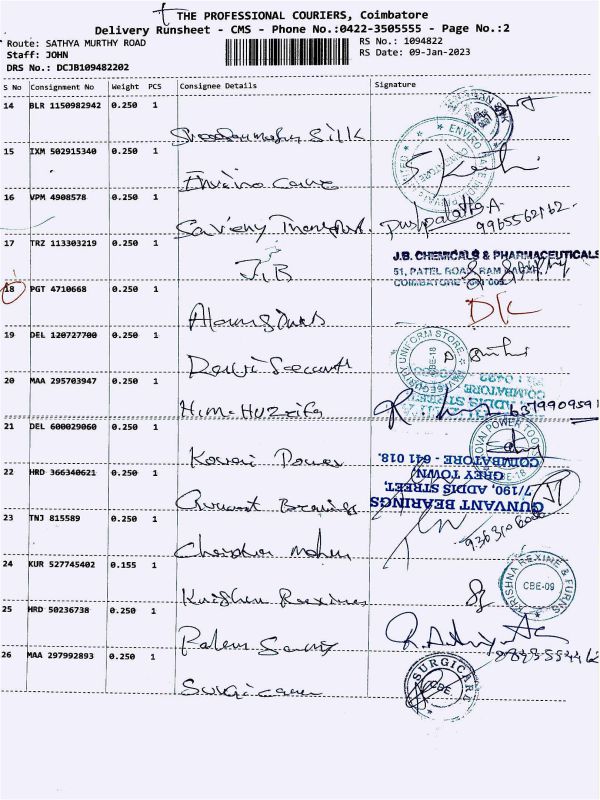 THE PROFESSIONAL COURIERS, Coimbatore
Delivery Runsheet - CMS - Phone No.:0422-3505555 - Page No.:2
Route: SATHYA MURTHY ROAD
RS No.: 1094822
Staff: JOHN
RS Date: 09-Jan-2023
DRS No.: DCJB109482202
S No Consignment No Weight PCS Consignee Details Signature
14 BLR 1150982942 0.250 1
Silk
15 IXM 502915340 0.250 1
Enviro Care
ENVIRO CARE
16 VPM 4908578 0.250 1
Transport
Pushpalatha A.
9965562162
17 TRZ 113303219 0.250 1
J.B
J.B. CHEMICALS & PHARMACEUTICALS
51, PATEL ROAD, RAM NAGAR,
COIMBATORE - 641 009
18 PGT 4710668 0.250 1
D/L
19 DEL 120727700 0.250 1
Devi
SECURITY UNIFORM STORE
CBE-18
20 MAA 295703947 0.250 1
H.M. Huzaifa
ADDIS STREET
COIMBATORE
6379909591
21 DEL 600029060 0.250 1
Kovai Power
KOVAI POWER TOOLS
CBE-18
22 HRD 366340621 0.250 1
Gunvant Bearings
GUNVANT BEARINGS
7/190, ADDIS STREET,
GREY TOWN
COIMBATORE - 641 018.
23 TNJ 815589 0.250 1
Chandra Mohan
24 KUR 527745402 0.155 1
Krishna Rexines
KRISHNA REXINE & FURNS
CBE-09
25 HRD 50236738 0.250 1
26 MAA 297992893 0.250 1
Surgicare
SURGICARE
CBE.